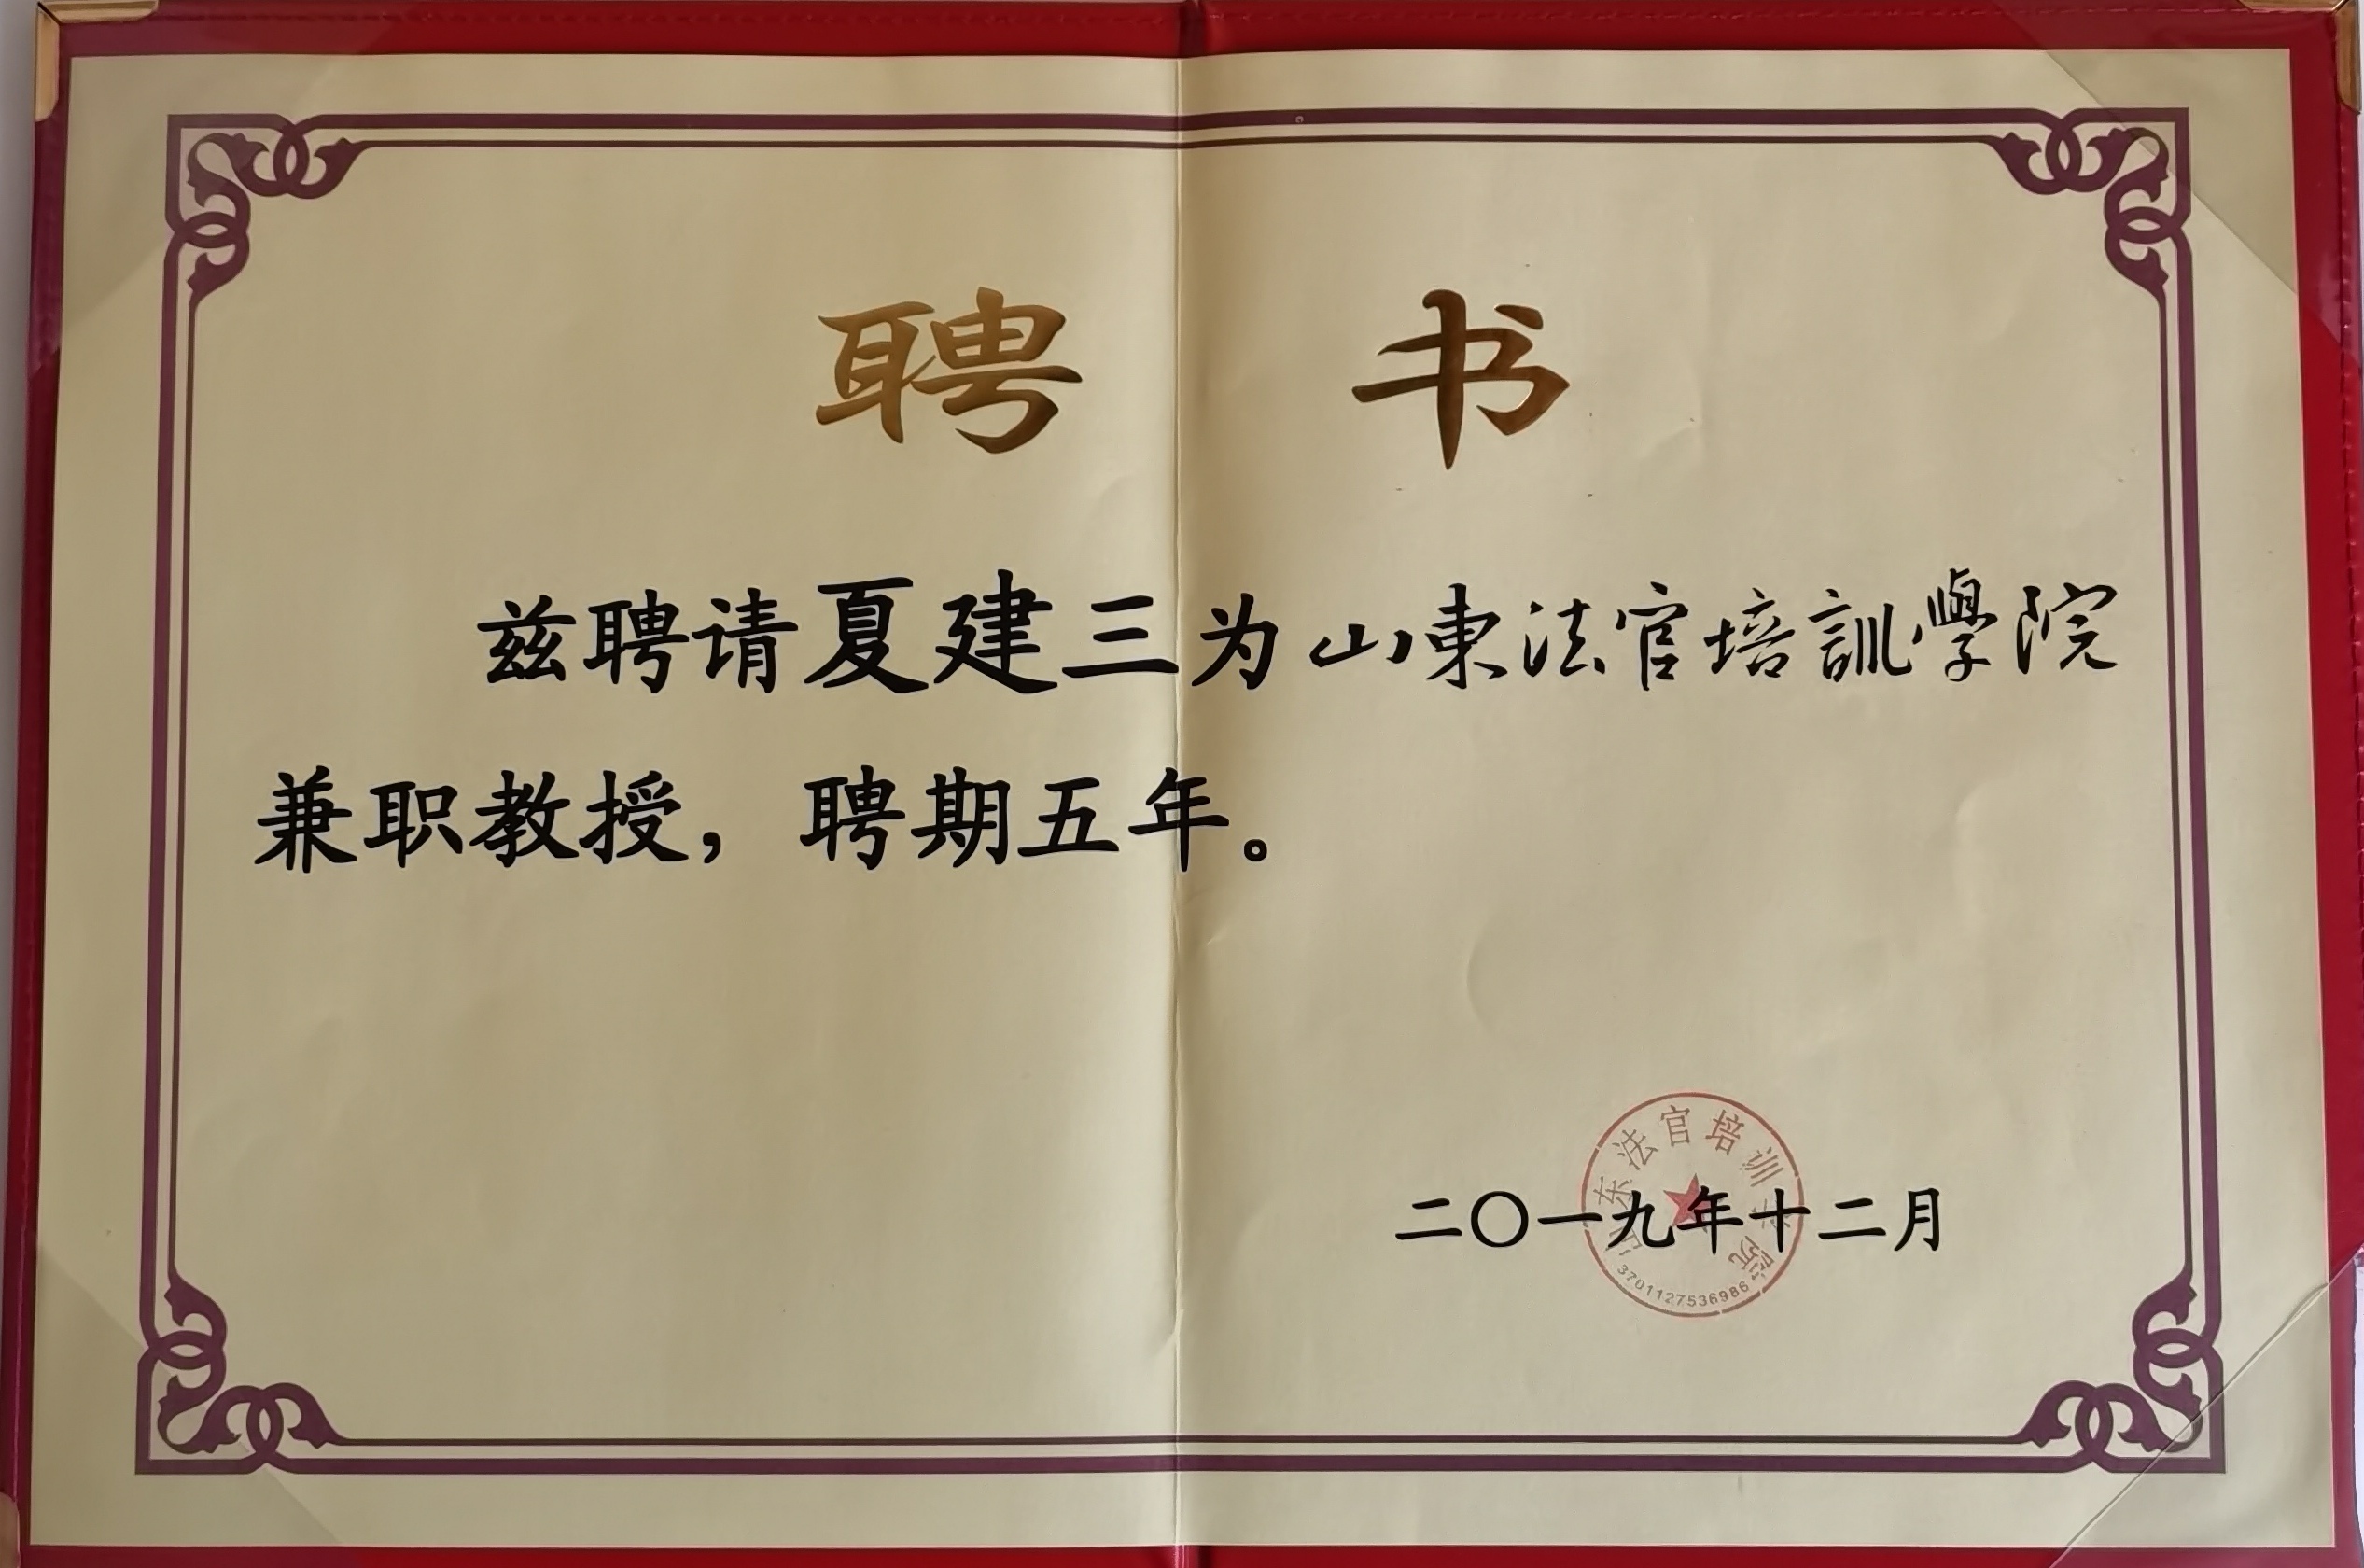 聘书
兹聘请夏建三为山東法官培訓學院
兼职教授，聘期五年。
山东法官培训学院
二〇一九年十二月
3701127536986